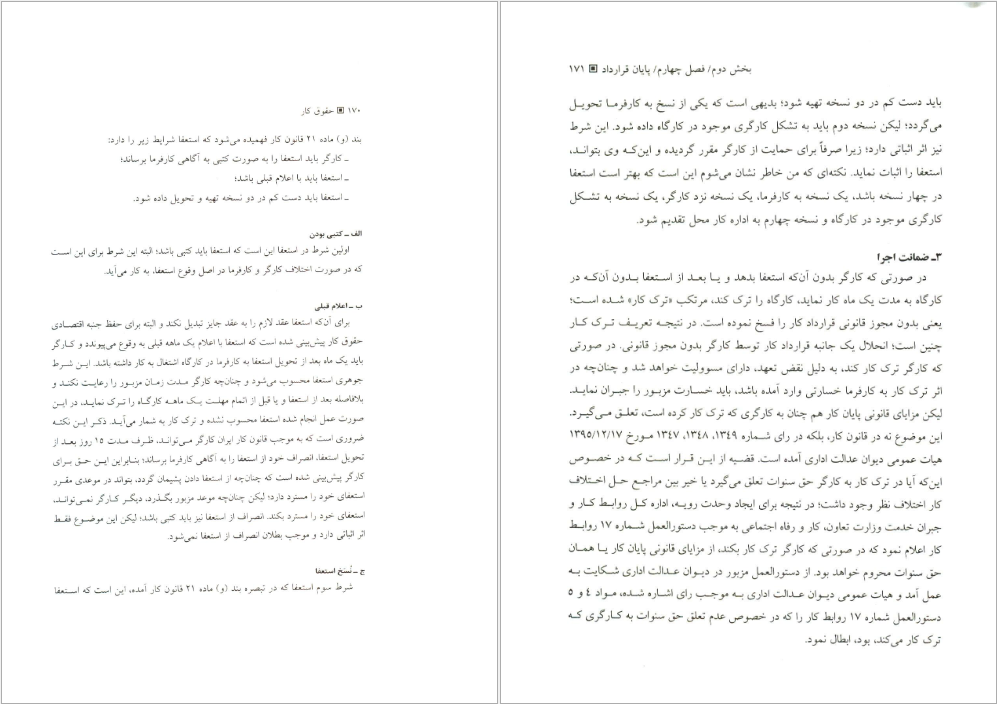 ۱۷۰ ▣ حقوق کار
بند (و) ماده ۲۱ قانون کار فهمیده می‌شود که استعفا شرایط زیر را دارد:
ـ کارگر باید استعفا را به صورت کتبی به آگاهی کارفرما برساند؛
ـ استعفا باید با اعلام قبلی باشد؛
ـ استعفا باید دست کم در دو نسخه تهیه و تحویل داده شود.
الف ـ کتبی بودن
اولین شرط در استعفا این است که استعفا باید کتبی باشد؛ البته این شرط برای این است
که در صورت اختلاف کارگر و کارفرما در اصل وقوع استعفا، به کار می‌آید.
ب ـ اعلام قبلی
برای آن‌که استعفا عقد لازم را به عقد جایز تبدیل نکند و البته برای حفظ جنبه اقتصادی
حقوق کار پیش‌بینی شده است که استعفا با اعلام یک ماهه قبلی به وقوع می‌پیوندد و کارگر
باید یک ماه بعد از تحویل استعفا به کارفرما در کارگاه اشتغال به کار داشته باشد. این شرط
جوهری استعفا محسوب می‌شود و چنان‌چه کارگر مدت زمان مزبور را رعایت نکند و
بلافاصله بعد از استعفا و یا قبل از اتمام مهلت یک ماهه کارگاه را ترک نماید، در این
صورت عمل انجام شده استعفا محسوب نشده و ترک کار به شمار می‌آید. ذکر این نکته
ضروری است که به موجب قانون کار ایران کارگر می‌تواند، ظرف مدت ۱۵ روز بعد از
تحویل استعفا، انصراف خود از استعفا را به آگاهی کارفرما برساند؛ بنابراین این حق برای
کارگر پیش‌بینی شده است که چنان‌چه از استعفا دادن پشیمان گردد، بتواند در موعدی مقرر
استعفای خود را مسترد دارد؛ لیکن چنان‌چه موعد مزبور بگذرد، دیگر کارگر نمی‌تواند،
استعفای خود را مسترد بکند. انصراف از استعفا نیز باید کتبی باشد؛ لیکن این موضوع فقط
اثر اثباتی دارد و موجب بطلان انصراف از استعفا نمی‌شود.
ج ـ نُسَخ استعفا
شرط سوم استعفا که در تبصره بند (و) ماده ۲۱ قانون کار آمده، این است که استعفا
بخش دوم/ فصل چهارم/ پایان قرارداد ▣ ۱۷۱
باید دست کم در دو نسخه تهیه شود؛ بدیهی است که یکی از نسخ به کارفرما تحویل
می‌گردد؛ لیکن نسخه دوم باید به تشکل کارگری موجود در کارگاه داده شود. این شرط
نیز اثر اثباتی دارد؛ زیرا صرفاً برای حمایت از کارگر مقرر گردیده و این‌که وی بتواند،
استعفا را اثبات نماید. نکته‌ای که من خاطر نشان می‌شوم این است که بهتر است استعفا
در چهار نسخه باشد، یک نسخه به کارفرما، یک نسخه نزد کارگر، یک نسخه به تشکل
کارگری موجود در کارگاه و نسخه چهارم به اداره کار محل تقدیم شود.
۳ـ ضمانت اجرا
در صورتی که کارگر بدون آن‌که استعفا بدهد و یا بعد از استعفا بدون آن‌که در
کارگاه به مدت یک ماه کار نماید، کارگاه را ترک کند، مرتکب «ترک کار» شده است؛
یعنی بدون مجوز قانونی قرارداد کار را فسخ نموده است. در نتیجه تعریف ترک کار
چنین است؛ انحلال یک جانبه قرارداد کار توسط کارگر بدون مجوز قانونی. در صورتی
که کارگر ترک کار کند، به دلیل نقض تعهد، دارای مسوولیت خواهد شد و چنان‌چه در
اثر ترک کار به کارفرما خسارتی وارد آمده باشد، باید خسارت مزبور را جبران نماید.
لیکن مزایای قانونی پایان کار هم چنان به کارگری که ترک کار کرده است، تعلق می‌گیرد.
این موضوع نه در قانون کار، بلکه در رای شماره ۱۳۴۹، ۱۳۴۸، ۱۳۴۷ مورخ ۱۳۹۵/۱۲/۱۷
هیات عمومی دیوان عدالت اداری آمده است. قضیه از این قرار است که در خصوص
این‌که آیا در ترک کار به کارگر حق سنوات تعلق می‌گیرد یا خیر بین مراجع حل اختلاف
کار اختلاف نظر وجود داشت؛ در نتیجه برای ایجاد وحدت رویه، اداره کل روابط کار و
جبران خدمت وزارت تعاون، کار و رفاه اجتماعی به موجب دستورالعمل شماره ۱۷ روابط
کار اعلام نمود که در صورتی که کارگر ترک کار بکند، از مزایای قانونی پایان کار یا همان
حق سنوات محروم خواهد بود. از دستورالعمل مزبور در دیوان عدالت اداری شکایت به
عمل آمد و هیات عمومی دیوان عدالت اداری به موجب رای اشاره شده، مواد ٤ و ٥
دستورالعمل شماره ۱۷ روابط کار را که در خصوص عدم تعلق حق سنوات به کارگری که
ترک کار می‌کند، بود، ابطال نمود.